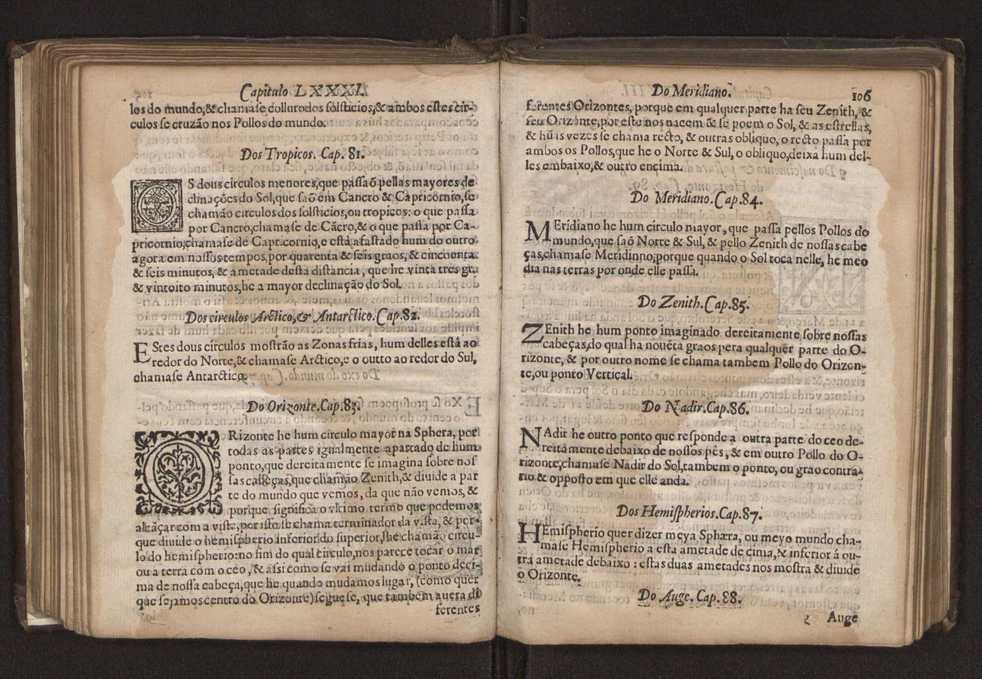 Capitulo LXXXI.
los do mundo, & chamase collurodos solsticios, & ambos estes cir-
culos se cruzão nos Pollos do mundo.
Dos Tropicos. Cap. 81.
OS dous circulos menores, que passaõ pellas mayores de
clinações do Sol, que saõ em Cancro & Capricornio, se
chamão circulos dos solsticios, ou tropicos: o que passa
por Cancro, chamase de Cãcro, & o que passa por Ca-
pricornio, chamase de Capricornio, e està afastado hum do outro
agora em nossos tempos, por quarenta & seis graos, & cincoenta
& seis minutos, & ametade desta distancia, que he vinta tres gra
& vintoito minutos, he a mayor declinação do Sol.
Dos circulos Arctico, & Antarctico. Cap. 82.
EStes dous circulos mostrão as Zonas frias, hum delles està ao
redor do Norte, & chamase Arctico, e o outto ao redor do Sul,
chamase Antarctico.
Do Orizonte. Cap. 83.
ORizonte he hum circulo mayor na Sphera, por
todas as partes igualmente apartado de hum
ponto, que dereitamente se imagina sobre nos
sas cabeças, que chamão Zenith, & divide a par
te do mundo que vemos, da que não vemos, &
porque significa o vltimo termo que podemos
alcãçar com a vista, por isso se chama terminador da vista, & por-
que divide o hemispherio inferior do superior, se chama circu-
lo do hemispherio: no fim do qual circulo, nos parece tocar o mar
ou a terra com o ceo, & assi como se vai mudando o ponto deci-
ma de nossa cabeça, que he quando mudamos lugar, (como quer
que sejamos centro do Orizonte) segue se, que tambem avera di
ferentes
Do Meridiano. 106
ferentes Orizontes, porque em qualquer parte ha seu Zenith, &
seu Orizonte, por este nos nacem & se poem o Sol, & as estrellas,
& hũas vezes se chama recto, & outras obliquo, o recto passa por
ambos os Pollos, que he o Norte & Sul, o obliquo, deixa hum del-
les embaixo, & outro encima.
Do Meridiano. Cap. 84.
MEridiano he hum circulo mayor, que passa pellos Pollos do
mundo, que saõ Norte & Sul, & pello Zenith de nossas cabe
ças, chamase Meridinno, porque quando o Sol toca nelle, he meo
dia nas terras por onde elle passa.
Do Zenith. Cap. 85.
ZEnith he hum ponto imaginado dereitamente sobre nossas
cabeças, do qual ha novẽta graos pera qualquer parte do O-
rizonte, & por outro nome se chama tambem Pollo do Orizon-
te, ou ponto Vertical.
Do Nadir. Cap. 86.
NAdir he outro ponto que responde a outra parte do ceo de-
reitamente debaixo de nossos pès, & em outro Pollo do O-
rizonte, chamase Nadir do Sol, tambem o ponto, ou grao contra-
rio & opposto em que elle anda.
Dos Hemispherios. Cap. 87.
HEmispherio quer dizer meya Sphæra, ou meyo mundo cha-
mase Hemispherio a esta ametade de cima, & inferior á ou-
tra ametade debaixo: estas duas ametades nos mostra & divide
o Orizonte.
Do Auge. Cap. 88.
Auge